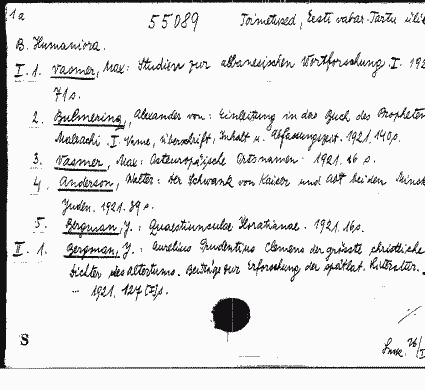 1a 55089 Toimetused, Eesti vabar. Tartu üli
B. Humaniora.
I. 1. Vasmer, Max: Studien zur albanesischen Wortforschung. I. 192
71 s.
2. Bulmerincq, Alexander von: Einleitung in das Buch des Propheten
Maleachi. I. Name, Überschrift, Inhalt u. Abfassungszeit. 1921. 140 s.
3. Vasmer, Max: Osteuropäische Ortsnamen. 1921. 16 s.
4. Anderson, Walter: Der Schwank von Kaiser und Abt bei den Minsk
Juden. 1921. 89 s.
5. Bergman, J.: Quaestiunculae Horatianae. 1921. 16 s.
II. 1. Bergman, J.: Aurelius Prudentius Clemens der grösste christliche
Dichter des Altertums. Beiträge zur Erforschung der spätlat.
1921. 127 s.
S